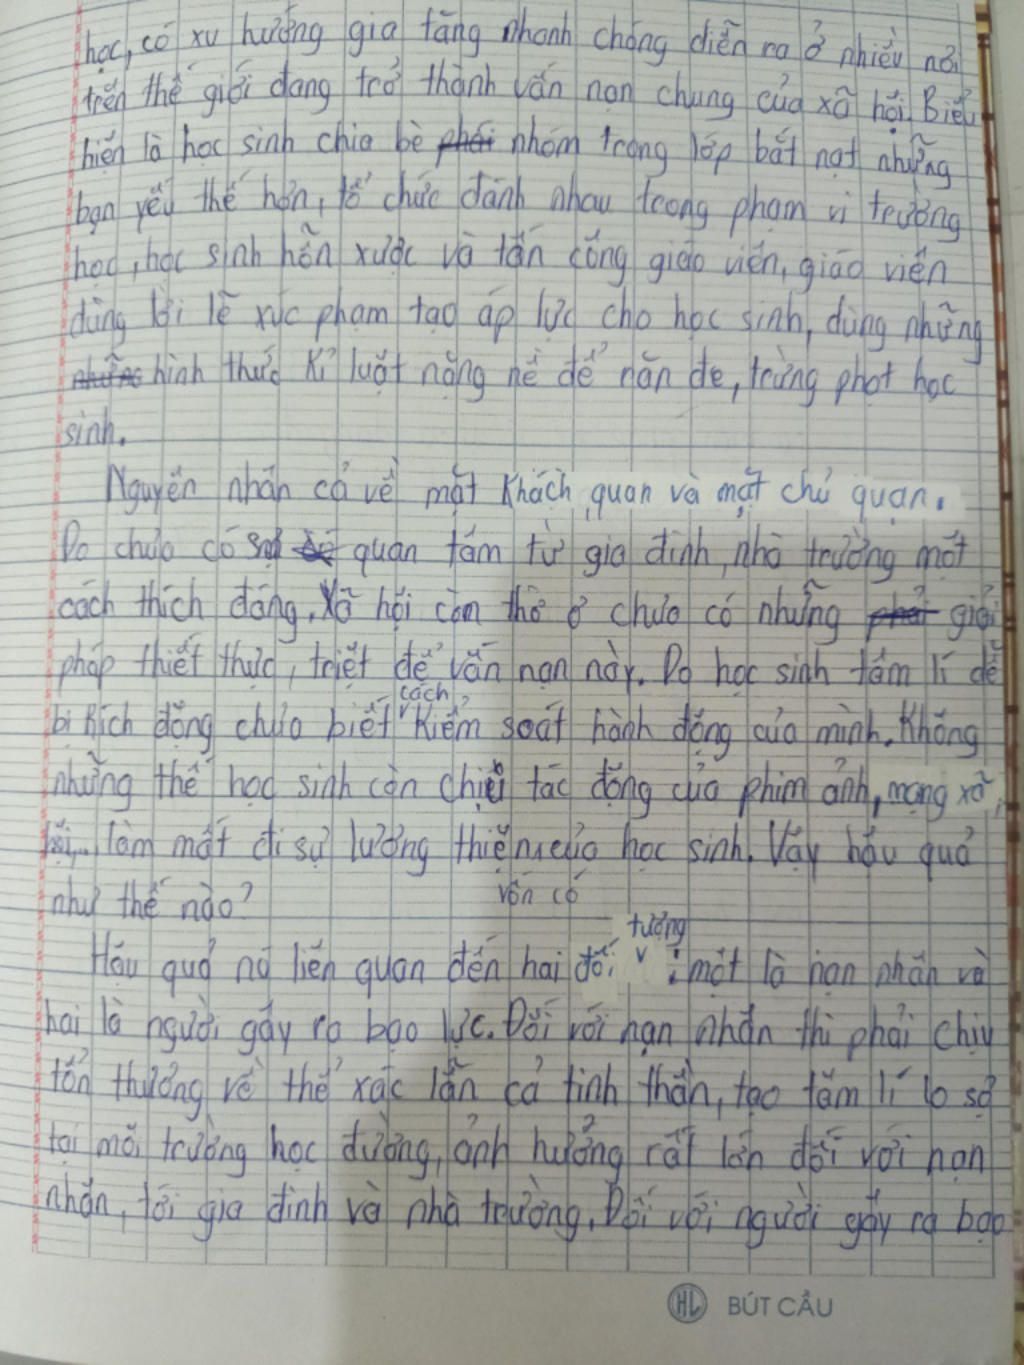 học, có xu hướng gia tăng nhanh chóng diễn ra ở nhiều nơi
trên thế giới đang trở thành vấn nạn chung của xã hội. Biểu
hiện là học sinh chia bè phái nhóm trong lớp bắt nạt những
bạn yếu thế hơn, tổ chức đánh nhau trong phạm vi trường
học, học sinh hỗn xược và tấn công giáo viên, giáo viên
dùng lời lẽ xúc phạm tạo áp lực cho học sinh, dùng những
những hình thức kỉ luật nặng nề để răn đe, trừng phạt học
sinh.
Nguyên nhân cả về mặt khách quan và mặt chủ quan.
Do chưa có sự quan tâm từ gia đình, nhà trường một
cách thích đáng. Xã hội còn thờ ơ chưa có những phải giải
pháp thiết thực, triệt để vấn nạn này. Do học sinh tâm lí dễ
cách
bị kích động chưa biết kiểm soát hành động của mình. Không
những thế học sinh còn chịu tác động của phim ảnh, mạng xã
hội,.. làm mất đi sự lương thiện của học sinh. Vậy hậu quả
vốn có
như thế nào?
tượng
Hậu quả nó liên quan đến hai đối : một là nạn nhân và
hai là người gây ra bạo lực. Đối với nạn nhân thì phải chịu
tổn thương về thể xác lẫn cả tinh thần, tạo tâm lí lo sợ
tại môi trường học đường, ảnh hưởng rất lớn đối với nạn
nhân, tới gia đình và nhà trường. Đối với người gây ra bạo
HL BÚT CẦU